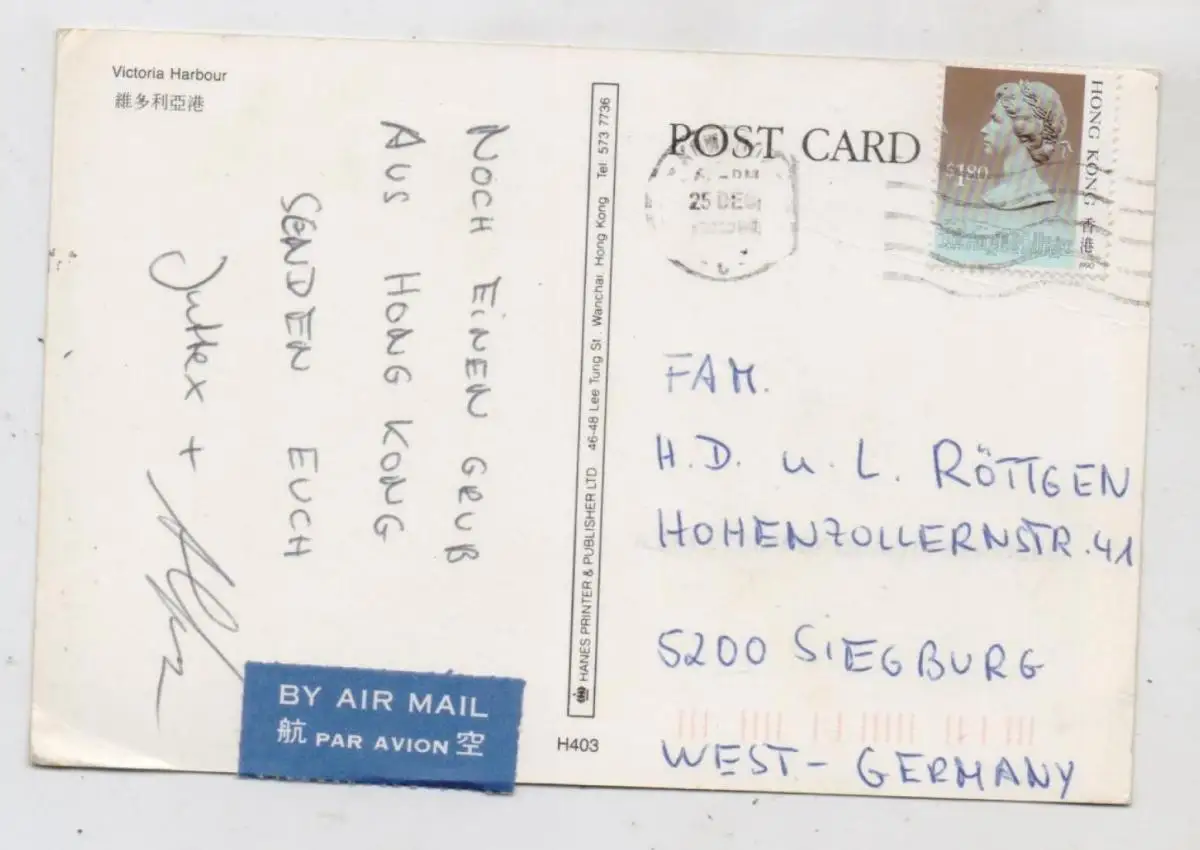 Victoria Harbour
維多利亞港
NOCH EINEN GRUß
AUS HONG KONG
SENDEN EUCH
+
BY AIR MAIL
航 PAR AVION 空
HANES PRINTER & PUBLISHER LTD 46-48 Lee Tung St. Wanchai, Hong Kong Tel: 573 7736
H403
POST CARD
25 DE
HONG KONG 香港
$1.80
1990
FAM.
H.D. u. L. RÖTTGEN
HOHENZOLLERNSTR. 41
5200 SIEGBURG
WEST-GERMANY